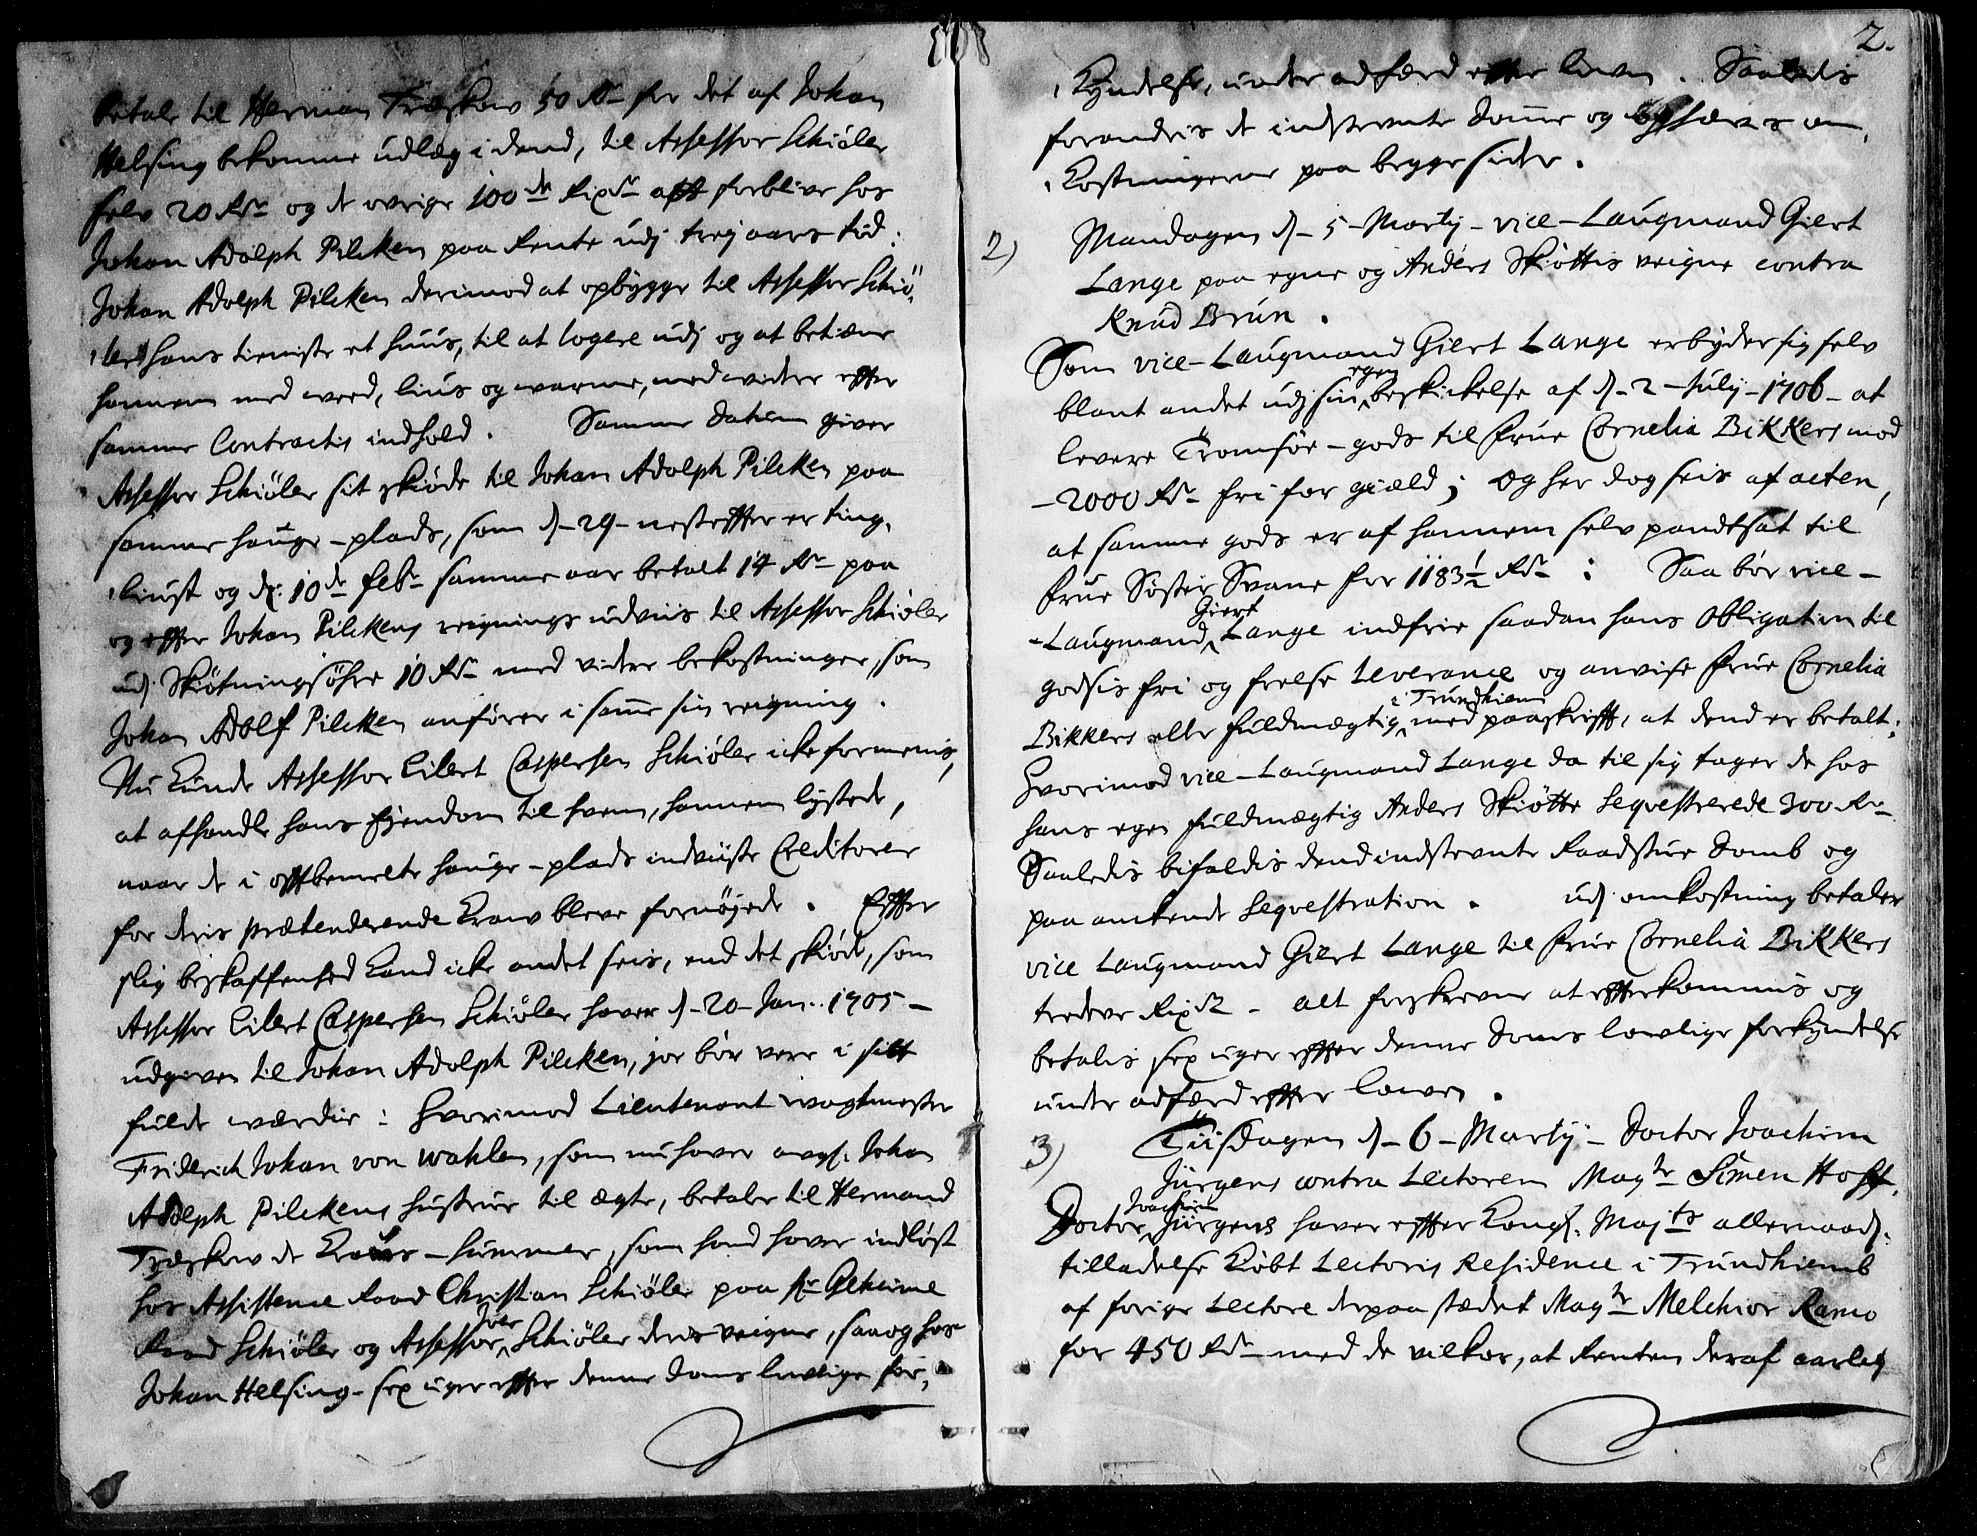 1708
betale til Herman Træskow 50 Rdr for det af Johan
Helsing bekomne udlæg i dend, til Assessor Schiøler
selv 20 Rdr og de øvrige 100de Rixdr att forblive hos
Johan Adolph Pilcken paa Rente udj trej aars tid:
Johan Adolph Pilcken derimod at opbygge til Assessor Schiø-
lers hans tieniste et huus, til at logere udj og at betiene
hannem med weed, lius og warme, med widere effter
samme Contractis indhold. Samme datum giver
Assessor Schiøler sit skiøde til Johan Adolph Pilcken paa
samme hauge-plads, som d. 29 nesteffter er ting-
liust og d. 10de febr samme aar betalt 14 Rdr paa
og effter Johan Pilckens reignings udviis til Assessor Schiøler
udj Skiøtningsøhre 10 Rdr med videre bekostninger, som
Johan Adolf Pilcken anfører i samme sin reigning.
Nu kunde Assessor Eilert Caspersen Schiøler icke formenis,
at afhandle hans Ejendom til hvem, hannem lystede,
naar de i offtbemelte hauge-plads indviiste Creditorer
for deris prætenderende Kraw bleve fornøjede. Effter
slig beskaffenhed kand icke andet seis, end det skiøde, som
Assessor Eilert Caspersen Schiøler haver d. 20 Jan. 1705
udgiven til Johan Adolph Pilcken, jo bør vere i sitt
fulde værdie: Hvorimod Lieutenant wagtmester
Friderich Johan von Wahlen, som nu haver avgl. Johan
Adolph Pilckens hustrue til ægte, betaler til Hermand
Træskow de Kraws-Summer, som hand haver indløst
hos Assistence Raad Christian Schiøler paa Hr Geheime
Raad Schiøler og Assessor Iver Schiøler deris veigne, saa og hos
Johan Helsing sex uger effter denne doms lovlige for-
2.
kyndelse, under adfærd effter loven. Saaledis
forandris de indstevnte domme og ophæves om-
kostningerne paa begge sider.
2) Mandagen d. 5 Martij vice-Laugmand Giert
Lange paa egne og Anders Skiøttis veigne contra
Knud Brun.
Som vice-Laugmand Giert Lange erbyder sig selv
blant andet udj sin egen beskickelse af d. 2 July 1706 at
levere Tromsøe-gods til Frue Cornelia Bikkers mod
2000 Rdr fri for giæld; Og her dog seis af acten,
at samme gods er af hannem selv pandtsat til
Frue Søster Svane for 1183½ Rdr: Saa bør vice-
Laugmand Giert Lange indfrie saadan hans Obligation til
godsis fri og frelse Leverance og anvise Frue Cornelia
Bikkers eller fuldmægtig i Trundhiem med paaskrifft, at dend er betalt:
Hvorimod vice-Laugmand Lange da til sig tager de hos
hans egen fuldmægtig Anders Skiøtte seqvestrerede 300 Rdr
Saaledis bifaldis dend indstevnte Raadstue Domb og
paa ankende Seqvestration. udj omkostning betaler
vice Laugmand Giert Lange til Frue Cornelia Bikkers
tredeve Rixdr. alt forskrevne at effterkommis og
betalis sex uger effter denne Doms lowlige forkyndelse
under adfærd effter lowen.
3) Tiisdagen d. 6 Martij Doctor Joachim
Jürgens contra Lectoren Magr Simen Hoff.
Doctor Joachim Jürgens haver effter Kongl. Majts allernaad.
tilladelse kiøbt Lectoris Residence i Trundhiemb
af forige Lectore derpaa stædet Magr Melchior Ramo
for 450 Rdr med de vilkor, at Renten deraf aarlig